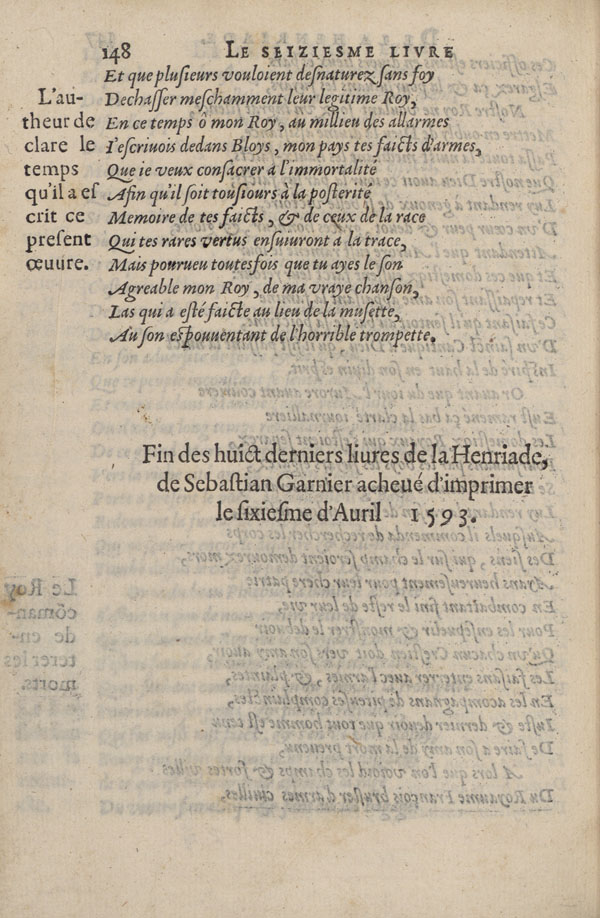 148 LE SEIZIESME LIVRE
Et que pluſieurs vouloient deſnaturez ſans foy
Dechaſſer meſchamment leur legitime Roy,
En ce temps ô mon Roy, au millieu des allarmes
I'eſcriuois dedans Bloys, mon pays tes faicts d'armes,
Que ie veux conſacrer a l'immortalité
Afin qu'il ſoit touſiours à la poſterité
Memoire de tes faicts, & de ceux de la race
Qui tes rares vertus enſuiuront a la trace,
Mais pourueu toutesfois que tu ayes le ſon
Agreable mon Roy, de ma vraye chanſon,
Las qui a eſté faicte au lieu de la muſette,
Au ſon eſpouuentant de l'horrible trompette.
L'au-
theur de
clare le
temps
qu'il a eſ
crit ce
preſent
œuure.
Fin des huict derniers liures de la Henriade,
de Sebaſtian Garnier acheué d'imprimer
le ſixieſme d'Auril 1593.